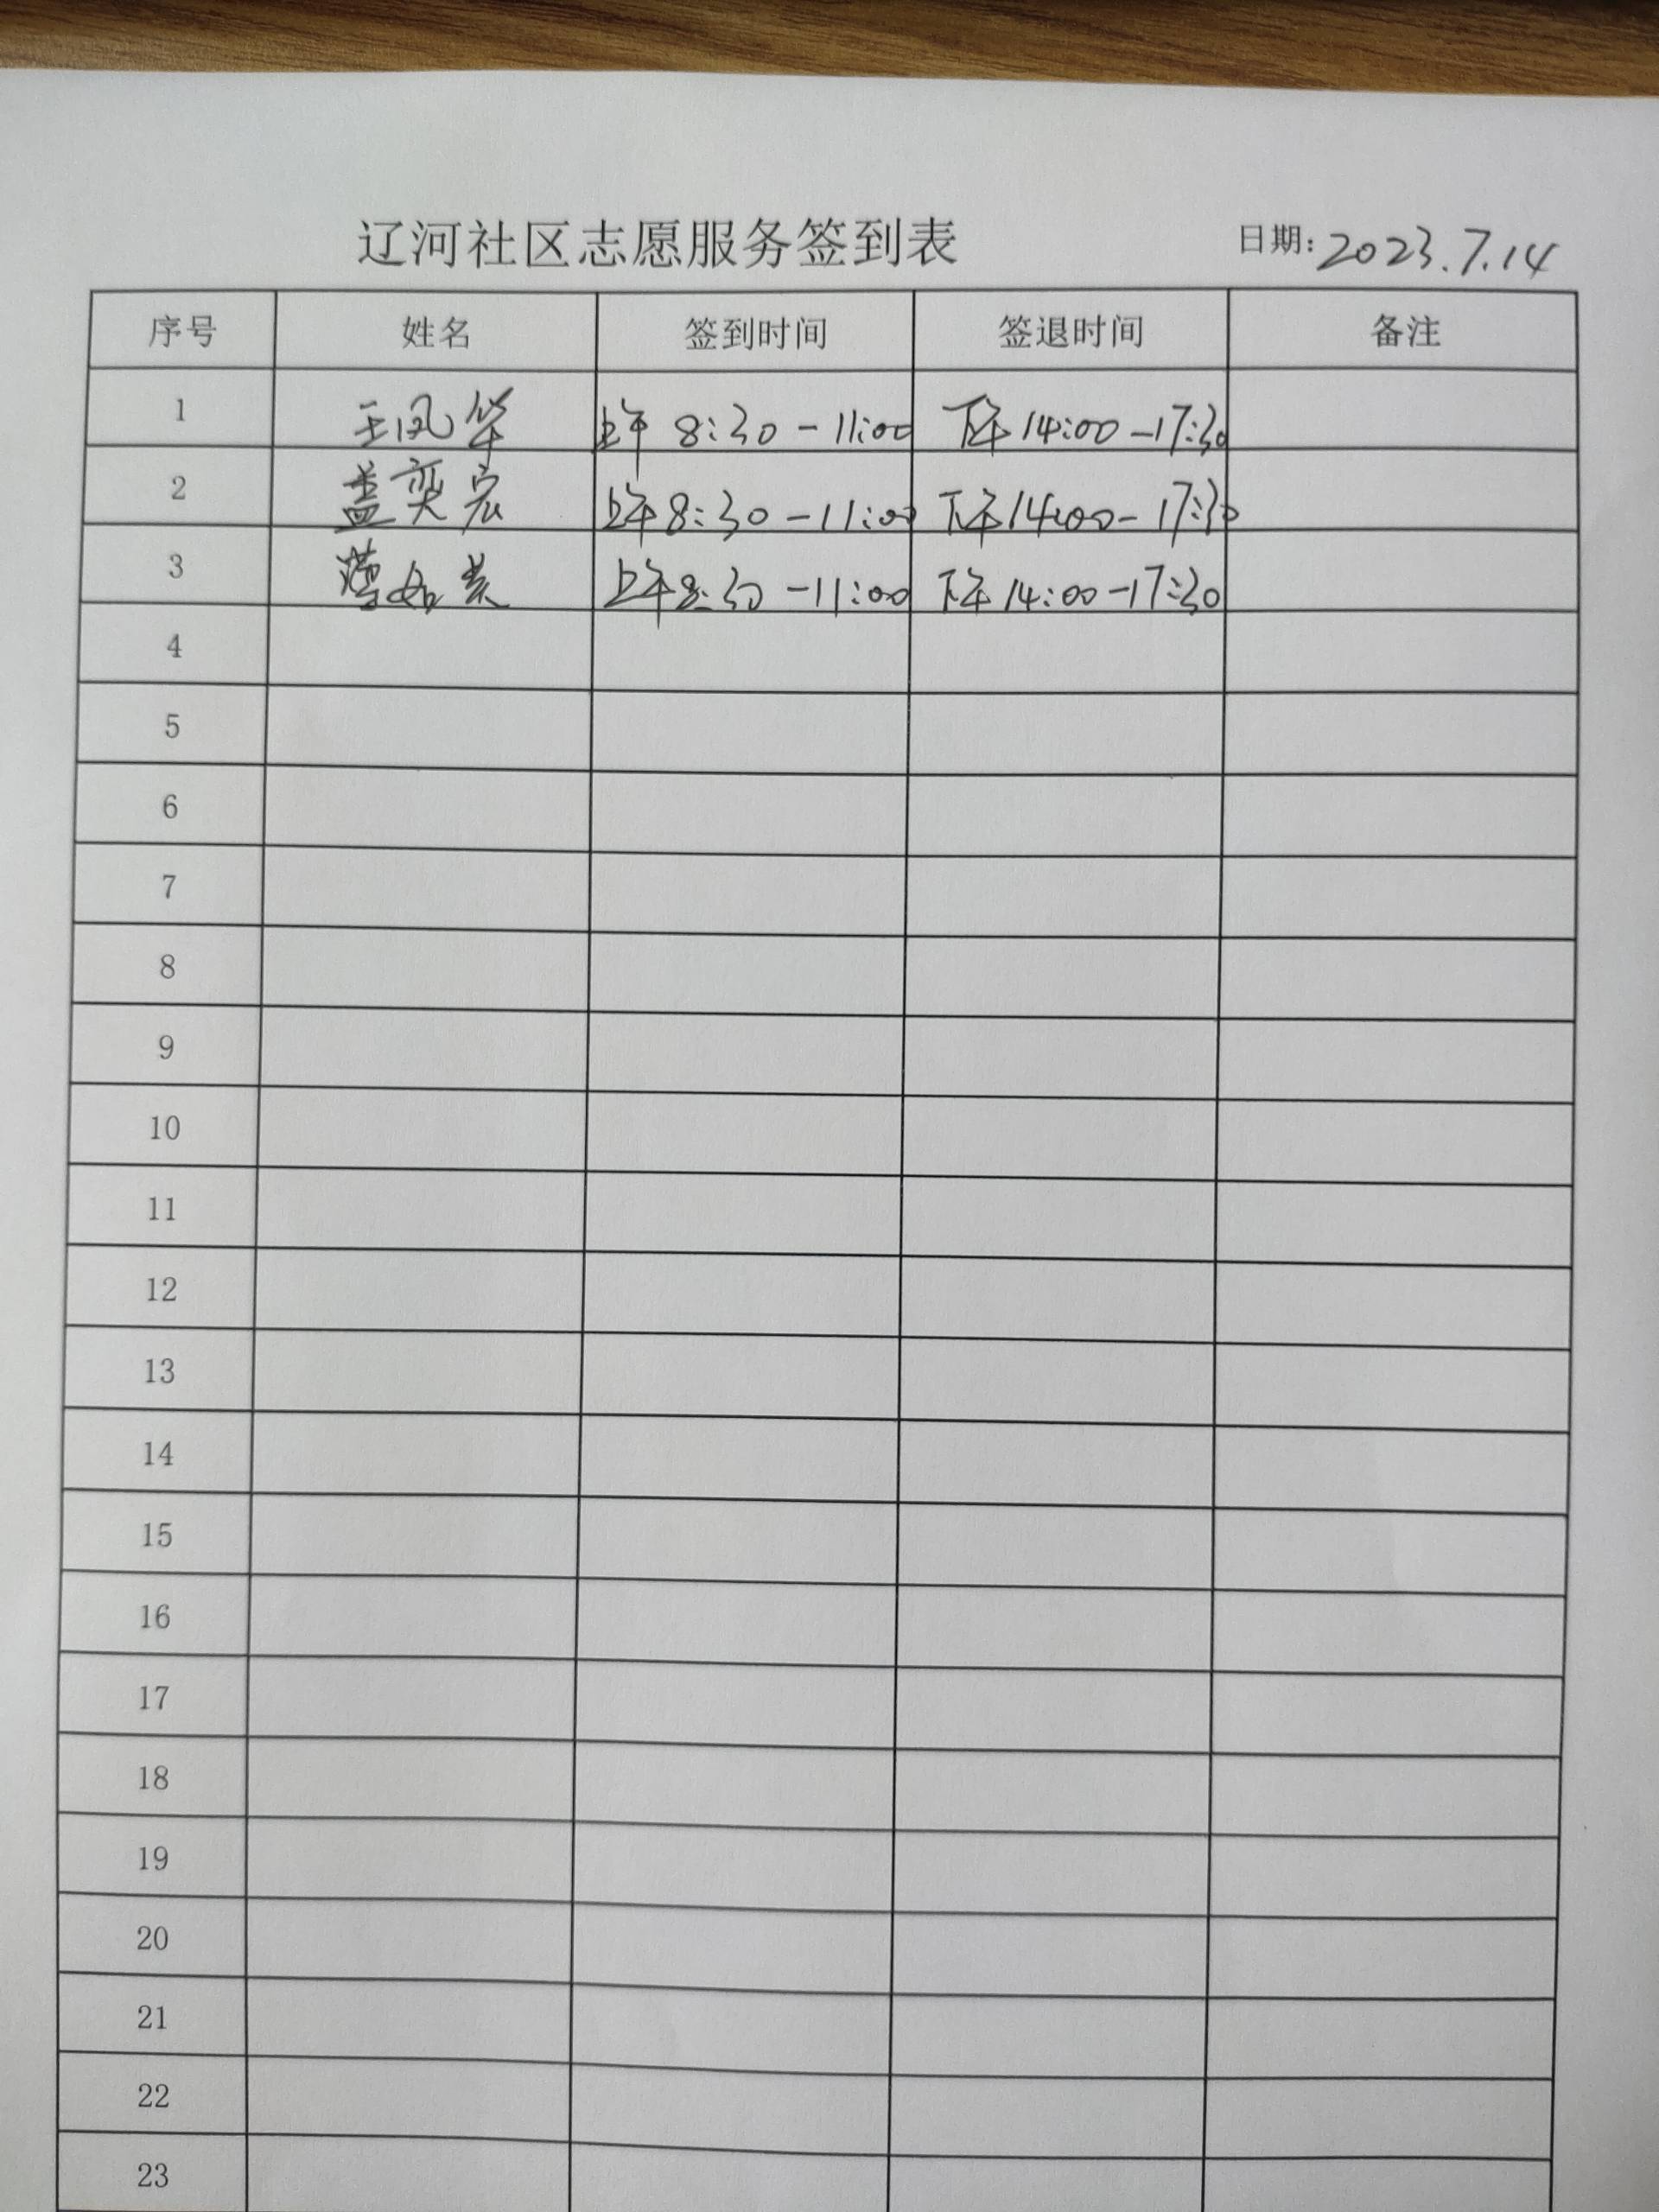 辽河社区志愿服务签到表 日期: 2023.7.14
序号 姓名 签到时间 签退时间 备注
1 王凤华 上午 8:30-11:00 下午14:00-17:30
2 盖奕宏 上午8:30-11:00 下午14:00-17:30
3 上午8:30-11:00 下午14:00-17:30
4
5
6
7
8
9
10
11
12
13
14
15
16
17
18
19
20
21
22
23